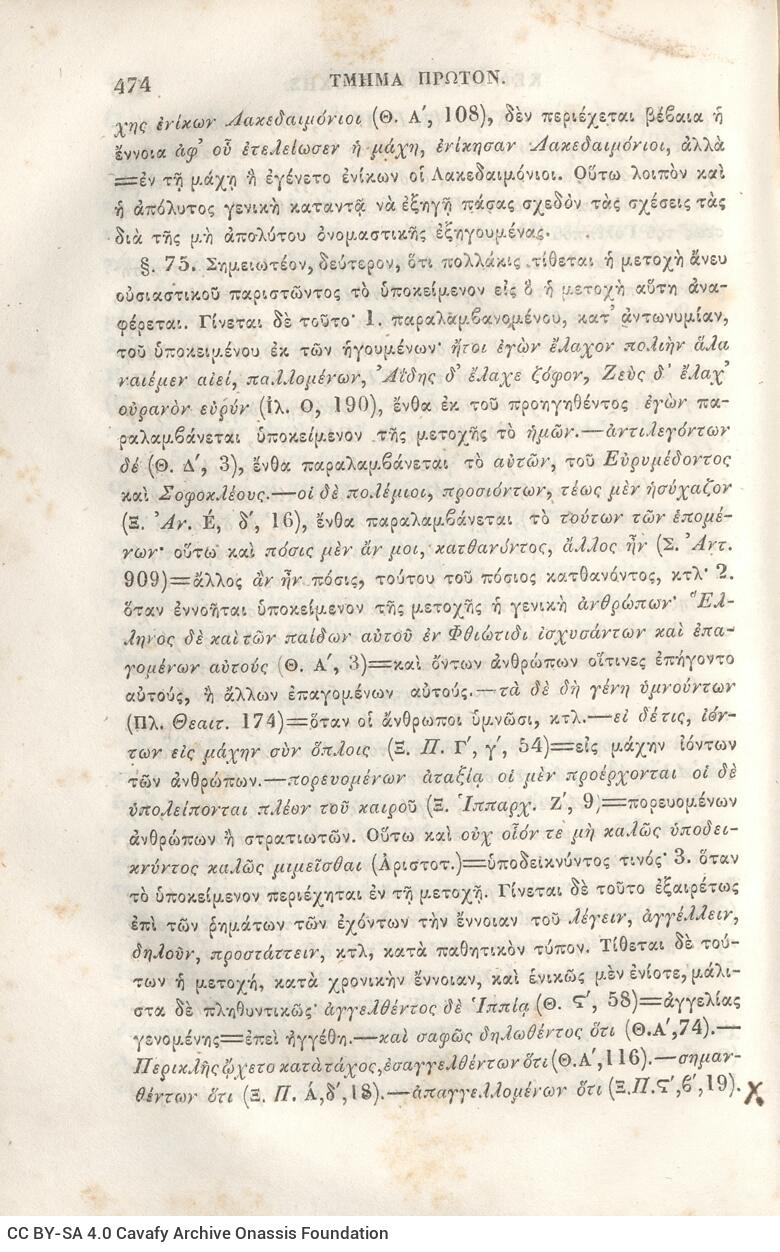 474
ΤΜΗΜΑ ΠΡΩΤΟΝ.
χης ἐνίκων Λακεδαιμόνιοι (Θ. Α΄, 108), δὲν περιέχεται βέβαια ἡ
ἔννοια ἀφ᾽ οὗ ἐτελείωσεν ἡ μάχη, ἐνίκησαν Λακεδαιμόνιοι, ἀλλὰ
=ἐν τῇ μάχῃ ἣ ἐγένετο ἐνίκων οἱ Λακεδαιμόνιοι. Οὕτω λοιπὸν καὶ
ἡ ἀπόλυτος γενικὴ καταντᾷ νὰ ἐξηγῇ πάσας σχεδὸν τὰς σχέσεις τὰς
διὰ τῆς μὴ ἀπολύτου ὀνομαστικῆς ἐξηγουμένας.
§. 75. Σημειωτέον, δεύτερον, ὅτι πολλάκις τίθεται ἡ μετοχὴ ἄνευ
οὐσιαστικοῦ παριστῶντος τὸ ὑποκείμενον εἰς ὃ ἡ μετοχὴ αὕτη ἀνα-
φέρεται. Γίνεται δὲ τοῦτο· 1. παραλαμβανομένου, κατ᾽ ἀντωνυμίαν,
τοῦ ὑποκειμένου ἐκ τῶν ἡγουμένων· ἤτοι ἐγὼν ἔλαχον πολιὴν ἅλα
ναιέμεν αἰεί, παλλομένων, Ἀΐδης δ᾽ ἔλαχε ζόφον, Ζεὺς δ᾽ ἔλαχ᾽
οὐρανὸν εὐρύν (Ἰλ. Ο, 190), ἔνθα ἐκ τοῦ προηγηθέντος ἐγὼν πα-
ραλαμβάνεται ὑποκείμενον τῆς μετοχῆς τὸ ἡμῶν.—ἀντιλεγόντων
δέ (Θ. Δ΄, 3), ἔνθα παραλαμβάνεται τὸ αὐτῶν, τοῦ Εὐρυμέδοντος
καὶ Σοφοκλέους.—οἱ δὲ πολέμιοι, προσιόντων, τέως μὲν ἡσύχαζον
(Ξ. Ἀν. Ε΄, δ΄, 16), ἔνθα παραλαμβάνεται τὸ τούτων τῶν ἑπομέ-
νων· οὕτω καὶ πόσις μὲν ἄν μοι, κατθανόντος, ἄλλος ἦν (Σ. Ἀντ.
909)=ἄλλος ἂν ἦν πόσις, τούτου τοῦ πόσιος κατθανόντος, κτλ· 2.
ὅταν ἐννοῆται ὑποκείμενον τῆς μετοχῆς ἡ γενικὴ ἀνθρώπων· Ἕλ-
ληνος δὲ καὶ τῶν παίδων αὐτοῦ ἐν Φθιώτιδι ἰσχυσάντων καὶ ἐπα-
γομένων αὐτούς (Θ. Α΄, 3)=καὶ ὄντων ἀνθρώπων οἵτινες ἐπήγοντο
αὐτούς, ἢ ἄλλων ἐπαγομένων αὐτούς.—τὰ δὲ δὴ γένη ὑμνούντων
(Πλ. Θεαιτ. 174)=ὅταν οἱ ἄνθρωποι ὑμνῶσι, κτλ.—εἰ δέτις, ἰόν-
των εἰς μάχην σὺν ὅπλοις (Ξ. Π. Γ΄, γ΄, 54)=εἰς μάχην ἰόντων
τῶν ἀνθρώπων.—πορευομένων ἀταξίᾳ οἱ μὲν προέρχονται οἱ δὲ
ὑπολείπονται πλέον τοῦ καιροῦ (Ξ. Ἱππαρχ. Ζ΄, 9)=πορευομένων
ἀνθρώπων ἢ στρατιωτῶν. Οὕτω καὶ οὐχ οἷόν τε μὴ καλῶς ὑποδει-
κνύντος καλῶς μιμεῖσθαι (Ἀριστοτ.)=ὑποδεικνύντος τινός· 3. ὅταν
τὸ ὑποκείμενον περιέχηται ἐν τῇ μετοχῇ. Γίνεται δὲ τοῦτο ἐξαιρέτως
ἐπὶ τῶν ῥημάτων τῶν ἐχόντων τὴν ἔννοιαν τοῦ λέγειν, ἀγγέλλειν,
δηλοῦν, προστάττειν, κτλ, κατὰ παθητικὸν τύπον. Τίθεται δὲ τού-
των ἡ μετοχή, κατὰ χρονικὴν ἔννοιαν, καὶ ἑνικῶς μὲν ἐνίοτε, μάλι-
στα δὲ πληθυντικῶς· ἀγγελθέντος δὲ Ἱππίᾳ (Θ. Ϛ΄, 58)=ἀγγελίας
γενομένης=ἐπεὶ ἠγγέθη.—καὶ σαφῶς δηλωθέντος ὅτι (Θ.Α΄,74).—
Περικλῆς ᾤχετο κατὰ τάχος, ἐσαγγελθέντων ὅτι (Θ.Α΄,116).—σημαν-
θέντων ὅτι (Ξ. Π. Α΄,δ΄,18).—ἀπαγγελλομένων ὅτι (Ξ.Π.Ϛ΄,β΄,19).
X
CC BY-SA 4.0 Cavafy Archive Onassis Foundation